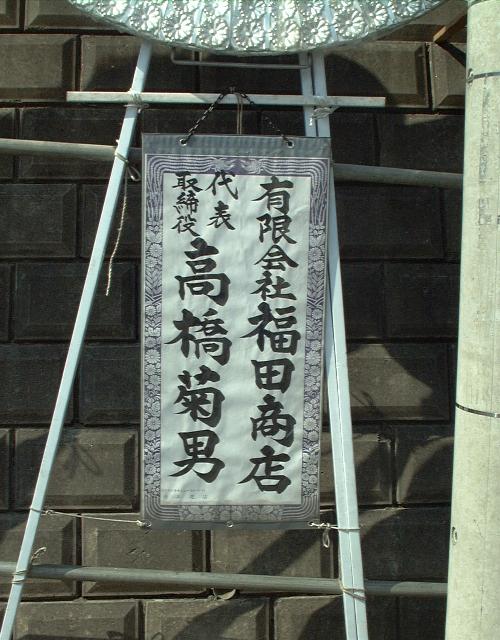 有限会社福田商店
代表
取締役
高橋菊男